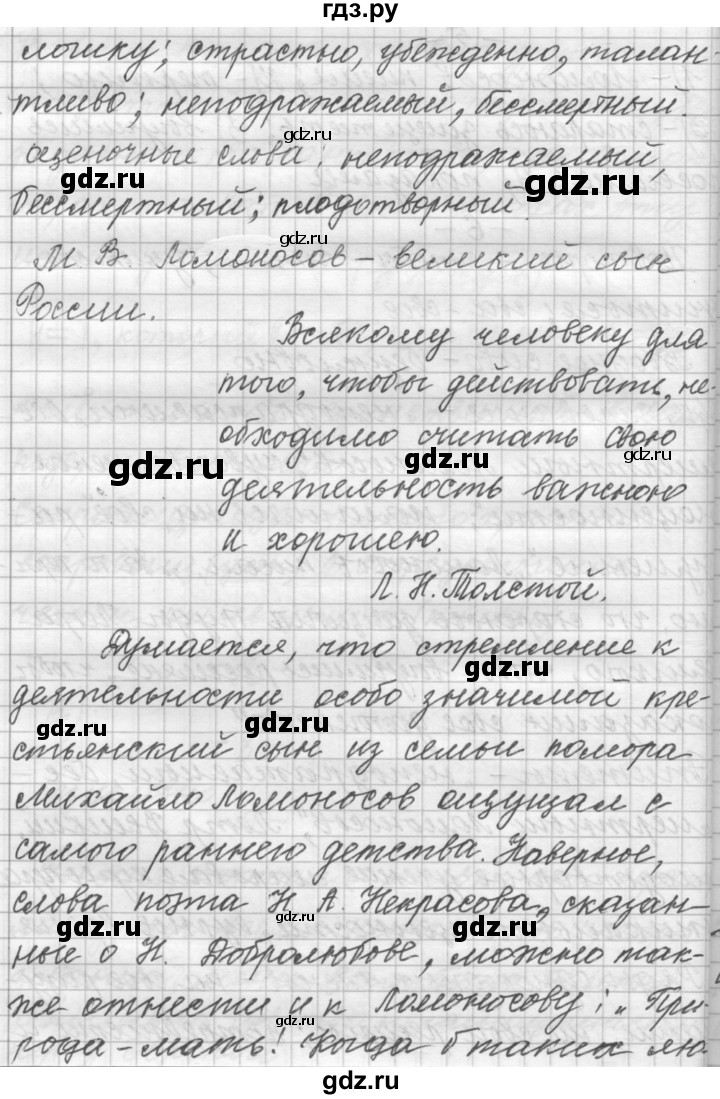 гдз.ру
логику; страстно, убежденно, талан-
тливо; неподражаемый, бессмертный.
оценочные слова: неподражаемый,
бессмертный; плодотворный
М. В. Ломоносов – великий сын
России.
Всякому человеку для
того, чтобы действовать, не-
обходимо считать свою
деятельность важною
и хорошею.
Л. Н. Толстой.
Думается, что стремление к
деятельности особо значимой кре-
стьянский сын из семьи помора
Михайло Ломоносов ощущал с
самого раннего детства. Наверное,
слова поэта Н. А. Некрасова, сказан-
ные о Н. Добролюбове, можно так-
же отнести и к Ломоносову: „При-
рода – мать! Когда б таких лю
gdz.ru